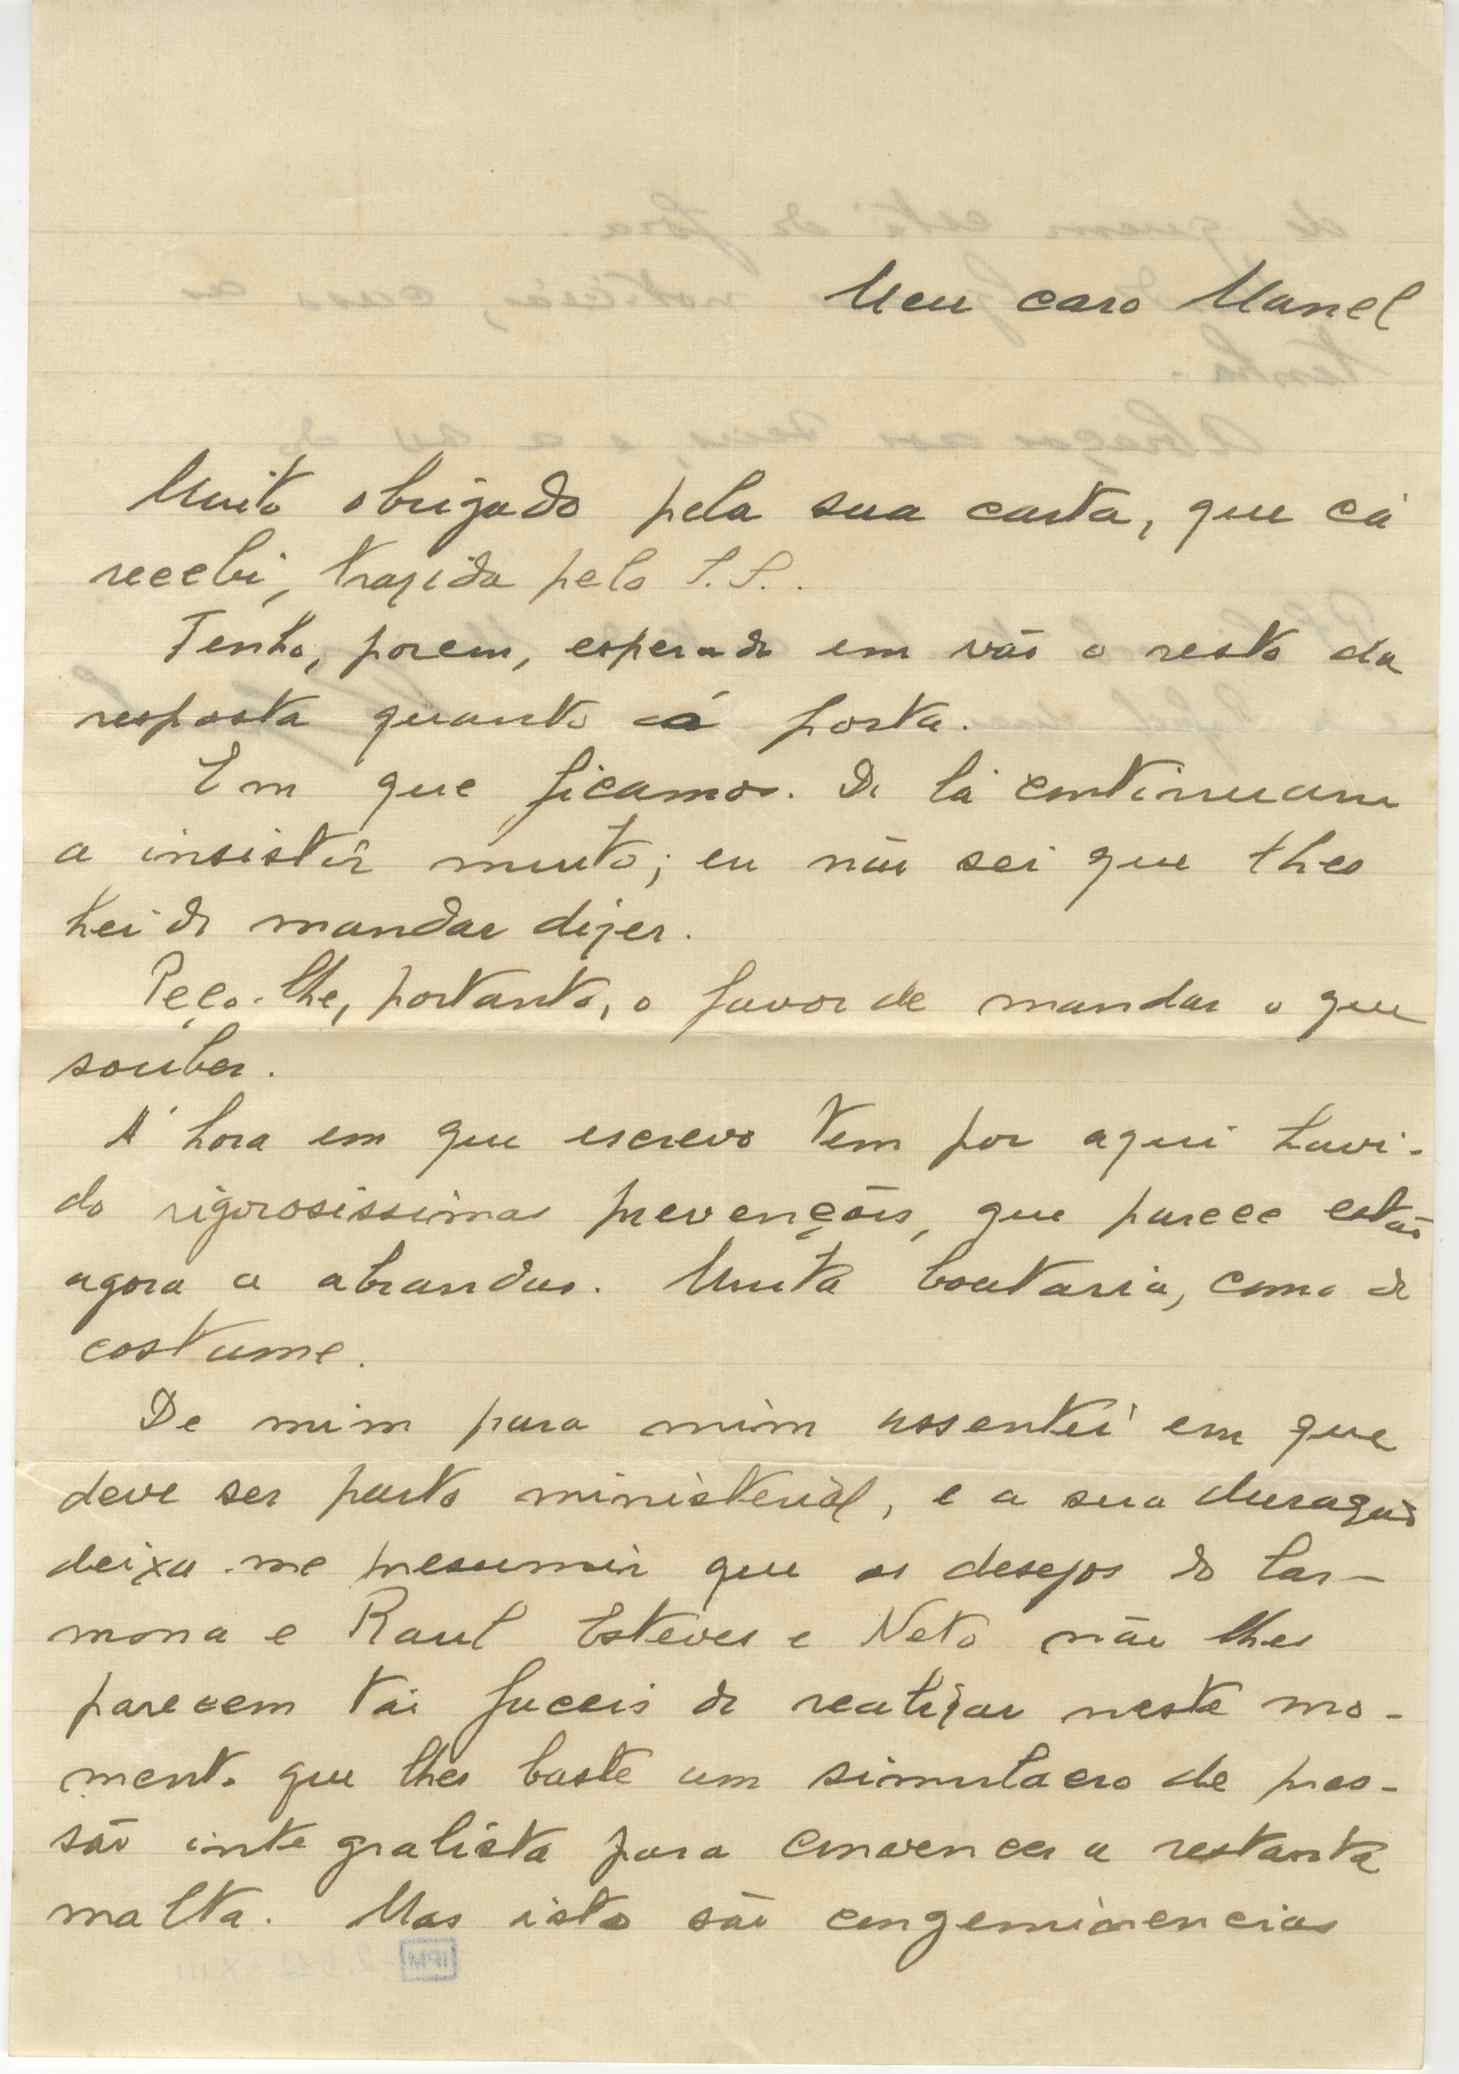 Meu caro Manel
Muito obrigado pela sua carta, que cá
recebi, trazida pelo S. S..
Tenho, porem, esperado em vão o resto da
resposta quanto á posta.
Em que ficamos. De lá continuam
a insistir muito; eu não sei que lhes
hei de mandar dizer.
Peço-lhe, portanto, o favor de mandar o que
souber.
A' hora em que escrevo tem por aqui havi-
do rigorosissimas prevenções, que parece estão
agora a abrandar. Muita boataria, como de
costume.
De mim para mim assentei em que
deve ser parto ministerial, e a sua duração
deixa-me presumir que os desejos do Car-
mona e Raul Esteves e Neto não lhes
parecem tão faceis de realizar neste mo-
mento que lhes baste um simulacro de pres-
são integralista para convencer a restante
malta. Mas isto são congeminencias